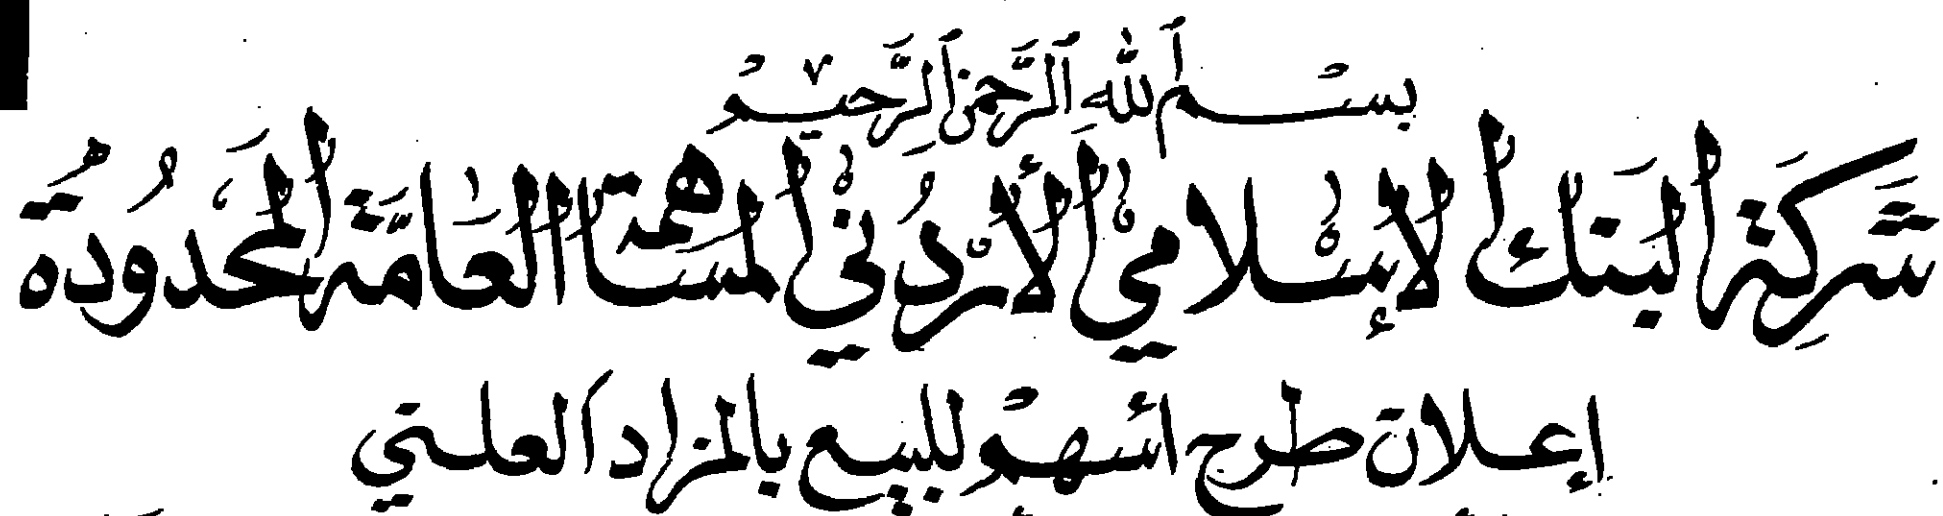 بسم الله الرحمن الرحيم
شركة البنك الإسلامي الأردني المساهمة العامة المحدودة
إعلان طرح اسهم للبيع بالمزاد العلني